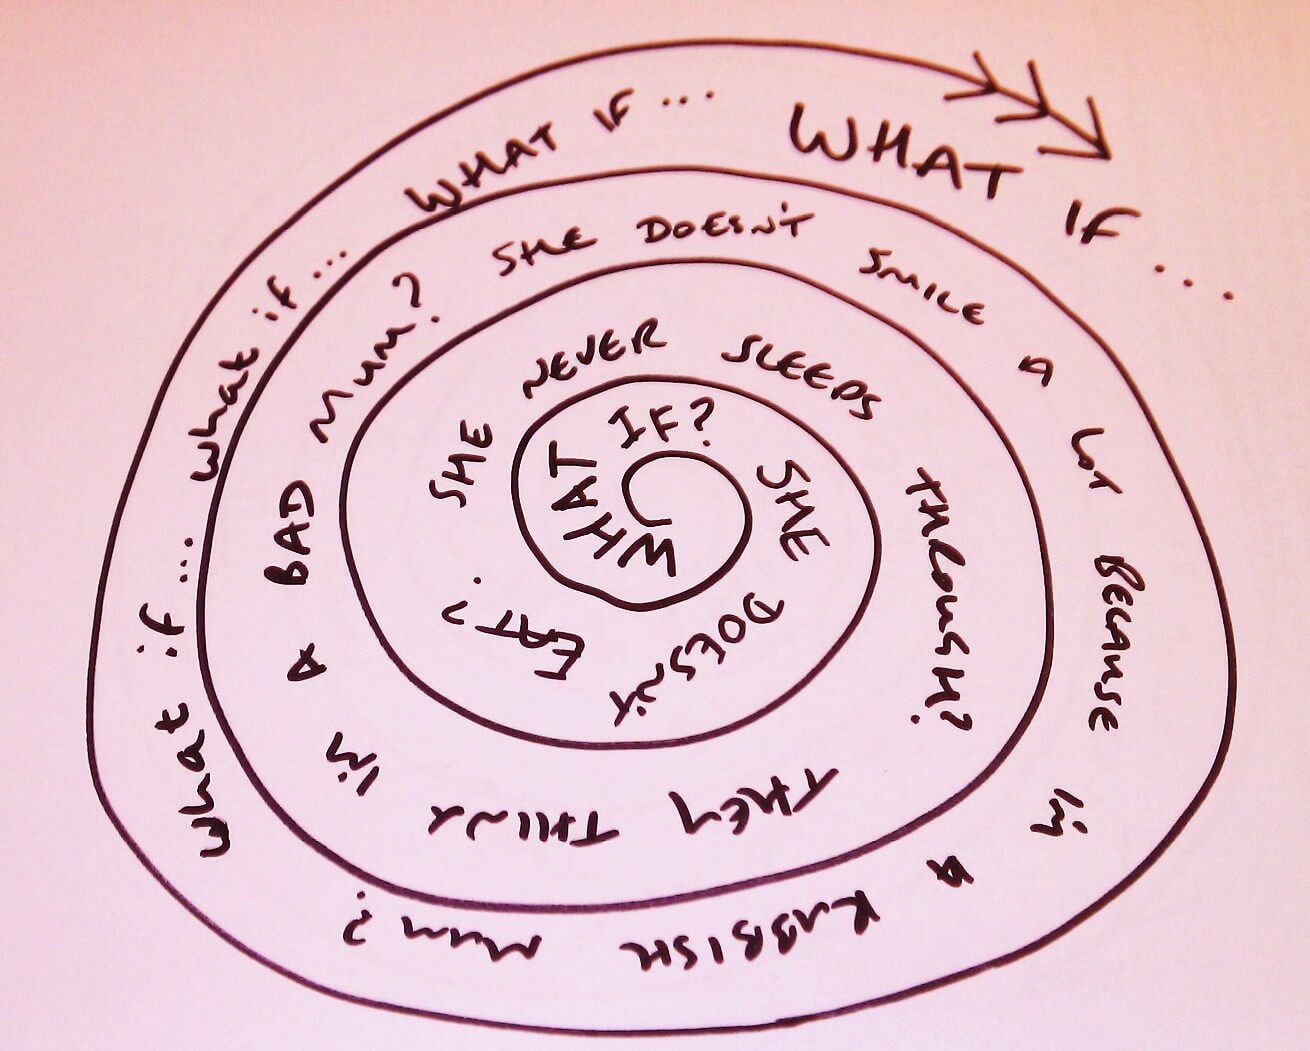 WHAT IF? SHE DOESN'T EAT? SHE NEVER SLEEPS THROUGH? THEY THINK I'M A BAD MUM? SHE DOESN'T SMILE A LOT BECAUSE I'M A RUBBISH MUM? what if... what if... WHAT IF... WHAT IF...